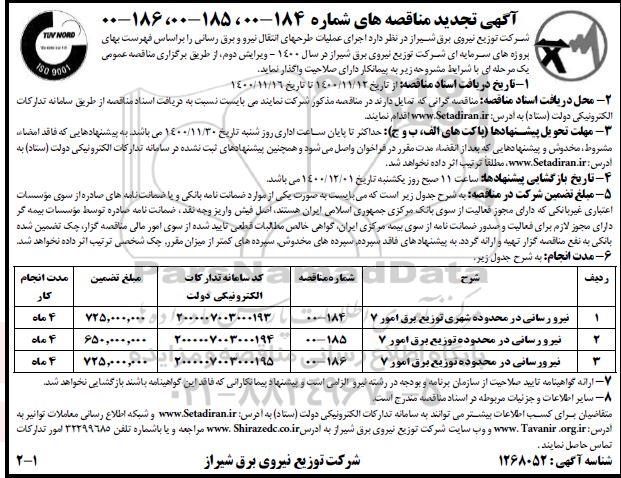 آگهی تجدید مناقصه های شماره ۱۸۴-۰۰، ۱۸۵-۰۰، ۱۸۶-۰۰
TUV NORD
ISO 9001
شرکت توزیع نیروی برق شیراز در نظر دارد اجرای عملیات طرحهای انتقال نیرو و برق رسانی را براساس فهرست بهای
پروژه های سرمایه ای شرکت توزیع نیروی برق شیراز در سال ۱۴۰۰ - ویرایش دوم، از طریق برگزاری مناقصه عمومی
یک مرحله ای با شرایط مشروحه زیر به پیمانکار دارای صلاحیت واگذار نماید.
۱- تاریخ دریافت اسناد مناقصه: از تاریخ ۱۴۰۰/۱۱/۱۲ تا تاریخ ۱۴۰۰/۱۱/۱۶
۲- محل دریافت اسناد مناقصه: مناقصه گرانی که تمایل دارند در مناقصه مذکور شرکت نمایند می بایست نسبت به دریافت اسناد مناقصه از طریق سامانه تدارکات
الکترونیکی دولت (ستاد) به آدرس: www.Setadiran.ir اقدام نمایند.
۳- مهلت تحویل پیشنهادها (پاکت های الف، ب و ج): حداکثر تا پایان ساعت اداری روز شنبه تاریخ ۱۴۰۰/۱۱/۳۰ می باشد. به پیشنهادهایی که فاقد امضاء،
مشروط، مخدوش و پیشنهادهایی که بعد از انقضاء مدت مقرر در فراخوان واصل می شود و همچنین پیشنهادهای ثبت نشده در سامانه تدارکات الکترونیکی دولت (ستاد) به
آدرس: www.Setadiran.ir، مطلقا ترتیب اثر داده نخواهد شد.
۴- تاریخ بازگشایی پیشنهادها: ساعت ۱۱ صبح روز یکشنبه تاریخ ۱۴۰۰/۱۲/۰۱ می باشد.
۵- مبلغ تضمین شرکت در مناقصه: به شرح جدول زیر است که می بایست به صورت یکی از موارد ضمانت نامه بانکی و یا ضمانت نامه های صادره از سوی مؤسسات
اعتباری غیربانکی که دارای مجوز فعالیت از سوی بانک مرکزی جمهوری اسلامی ایران هستند، اصل فیش واریز وجه نقد، ضمانت نامه صادره توسط مؤسسات بیمه گر
دارای مجوز لازم برای فعالیت و صدور ضمانت نامه از سوی بیمه مرکزی ایران، گواهی خالص مطالبات قطعی تایید شده از سوی امور مالی مناقصه گزار، چک تضمین شده
بانکی به نفع مناقصه گزار تهیه و ارائه گردد. به پیشنهادهای فاقد سپرده، سپرده های مخدوش، سپرده های کمتر از میزان مقرر، چک شخصی ترتیب اثر داده نخواهد شد.
۶- مدت انجام: به شرح جدول زیر.
ردیف شرح شماره مناقصه کد سامانه تدارکات الکترونیکی دولت مبلغ تضمین مدت انجام کار
۱ نیرو رسانی در محدوده شهری توزیع برق امور ۷ ۱۸۴-۰۰ ۲۰۰۰۰۰۷۰۰۳۰۰۰۱۹۳ ۷۲۵,۰۰۰,۰۰۰ ۴ ماه
۲ نیرو رسانی در محدوده توزیع برق امور ۷ ۱۸۵-۰۰ ۲۰۰۰۰۰۷۰۰۳۰۰۰۱۹۴ ۶۵۰,۰۰۰,۰۰۰ ۴ ماه
۳ نیرو رسانی در محدوده توزیع برق امور ۷ ۱۸۶-۰۰ ۲۰۰۰۰۰۷۰۰۳۰۰۰۱۹۵ ۷۲۵,۰۰۰,۰۰۰ ۴ ماه
۷- ارائه گواهینامه تایید صلاحیت از سازمان برنامه و بودجه در رشته نیرو الزامی است و پیشنهاد پیمانکارانی که فاقد این گواهینامه باشند بازگشایی نخواهد شد.
۸- سایر اطلاعات و جزئیات مربوطه در اسناد مناقصه مندرج است.
متقاضیان برای کسب اطلاعات بیشتر می توانند به سامانه تدارکات الکترونیکی دولت (ستاد) به آدرس: www.Setadiran.ir و شبکه اطلاع رسانی معاملات توانیر به
آدرس: www. Tavanir .org.ir و وب سایت شرکت توزیع نیروی برق شیراز به آدرس www. Shirazedc.co.ir مراجعه و یا باشماره تلفن ۳۲۲۹۹۶۸۵ امور تدارکات
تماس حاصل نمایند.
شناسه آگهی: ۱۲۶۸۰۵۲
شرکت توزیع نیروی برق شیراز
۲-۱